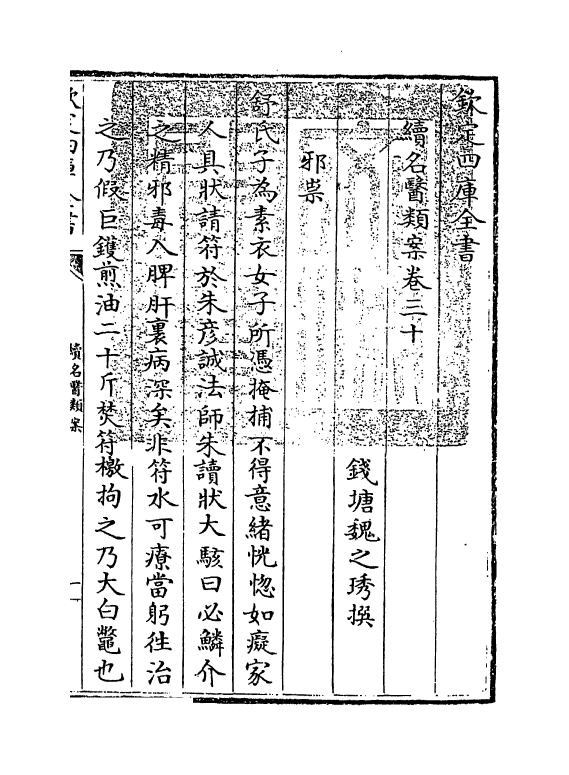 欽定四庫全書
續名醫類案卷三十
錢塘魏之琇撰
邪祟
舒氏子為素衣女子所憑掩捕不得意緒恍惚如癡家
人具狀請符於朱彦誠法師朱讀狀大駭曰必鱗介
之精邪毒入脾肝裏病深矣非符水可療當躬往治
之乃假巨鑊煎油二十斤焚符檄拘之乃大白鼈也
欽定四庫全書
續名醫類案
一